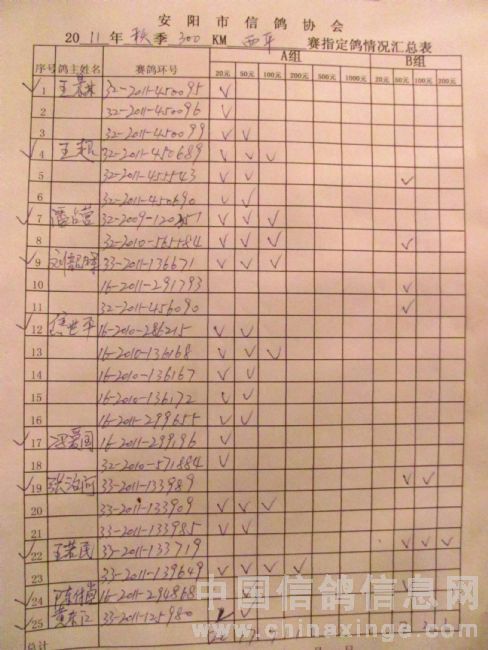 安阳市信鸽协会
20 11 年 秋 季 300 KM 西平 赛指定鸽情况汇总表
序号 鸽主姓名 赛鸽环号 A组 B组
20元 50元 100元 200元 500元 1000元 20元 50元 100元 200元
1 32-2011-450095 √
2 32-2011-450096 √
3 32-2011-450099 √ √
4 王超 32-2011-450689 √ √ √
5 32-2011-455543 √ √ √
6 32-2011-450690 √ √
7 32-2009-120357 √ √ √
8 32-2010-565584 √ √ √ √
9 33-2011-136671 √ √ √
10 16-2011-291793 √
11 32-2011-456090 √
12 16-2010-286215 √ √
13 16-2010-136168 √ √ √
14 16-2010-136167 √ √
15 16-2010-136172 √ √
16 16-2011-299655 √ √
17 冯爱国 16-2011-299196 √
18 32-2010-571884 √
19 张治河 33-2011-133989 √ √
20 33-2011-133909 √ √ √
21 33-2011-133985 √ √
22 王若民 33-2011-133719 √ √ √
23 33-2011-139649 √ √ √ √
24 16-2011-294868 √
25 33-2011-125980 √
总计
中国信鸽信息网
www.chinaxinge.com